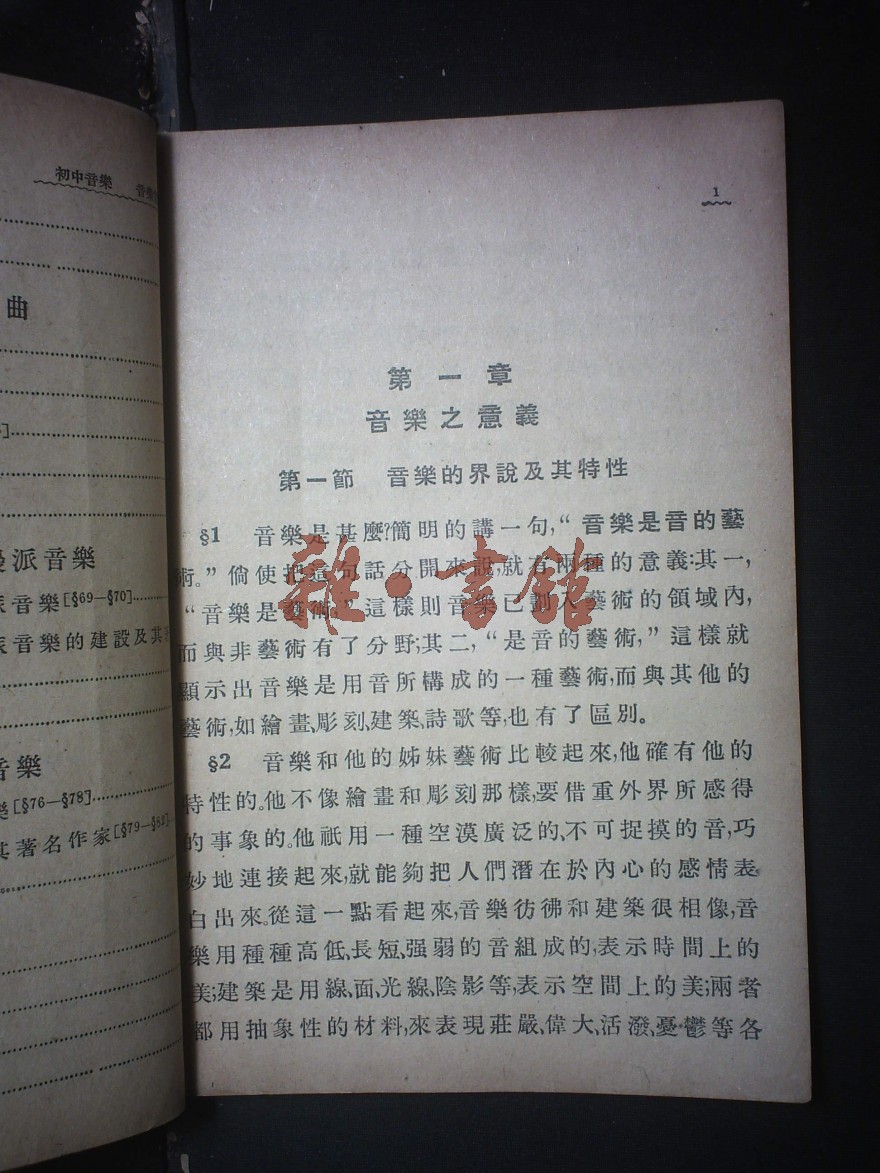 初中音樂 音樂
曲
派音樂
派音樂[§69—§70]
派音樂的建設及其
音樂
樂[§76—§78]
其著名作家[§79—§8
1
第一章
音樂之意義
第一節 音樂的界說及其特性
§1 音樂是甚麼?簡明的講一句,“音樂是音的藝
術。”倘使把這句話分開來說,就有兩種的意義:其一,
“音樂是藝術,”這樣則音樂已劃入藝術的領域內,
而與非藝術有了分野;其二,“是音的藝術,”這樣就
顯示出音樂是用音所構成的一種藝術,而與其他的
藝術,如繪畫、彫刻、建築、詩歌等,也有了區別。
§2 音樂和他的姊妹藝術比較起來,他確有他的
特性的。他不像繪畫和彫刻那樣,要借重外界所感得
的事象的。他祇用一種空漠廣泛的、不可捉摸的音,巧
妙地連接起來,就能夠把人們潛在於內心的感情表
白出來。從這一點看起來,音樂彷彿和建築很相像,音
樂用種種高低、長短、强弱的音組成的,表示時間上的
美;建築是用線、面、光線、陰影等,表示空間上的美;兩者
都用抽象性的材料,來表現莊嚴、偉大、活潑、憂鬱等各
雜·書館